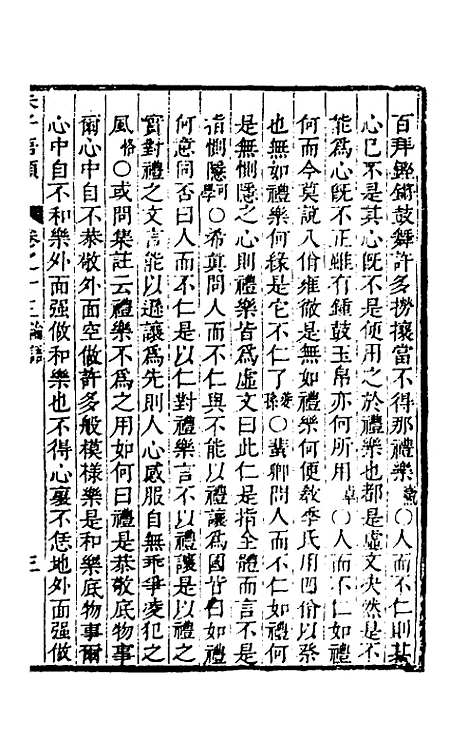 百拜鏗鏘鼓舞許多勞攘當不得那禮樂㽦〇人而不仁則其
心已不是其心既不是便用之於禮樂也都是虛文決然是不
能為心既不正雖有鍾鼓玉帛亦何所用卓〇人而不仁如禮
何而今莫說八佾雍徹是無如禮樂何便教季氏用四佾以祭
也無如禮樂何緣是它不仁了䕫孫〇蜚卿問人而不仁如禮何
是無惻隱之心則禮樂皆為虛文曰此仁是指全體而言不是
指惻隱可學〇希真問人而不仁與不能以禮讓為國皆曰如禮
何意同否曰人而不仁是以仁對禮樂言不以禮讓是以禮之
實對禮之文言能以遜讓為先則人心感服自無乖爭凌犯之
風恪〇或問集註云禮樂不為之用如何曰禮是恭敬底物事
爾心中自不恭敬外面空做許多般模樣樂是和樂底物事爾
心中自不和樂外面强做和樂也不得心裏不恁地外面强做
朱子語類 卷之二十五 論語 三